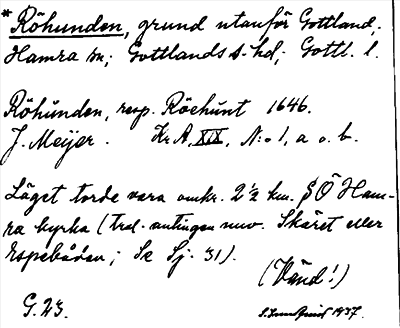 * Röhunden, grund utanför Gottland,
Hamra sn; Gottlands s. hd; Gottl. l.
Röhunden, resp. Röehunt 1646.
J. Meijer. Kr. A, XIX, N:o 1, a o. b.
Läget torde vara omkr. 2½ km. SÖ Ham-
ra kyrka (trol. antingen nuv. Skäret eller
Espebåden; Se Sj. 31).
(Vänd!)
G. 23. 1937.